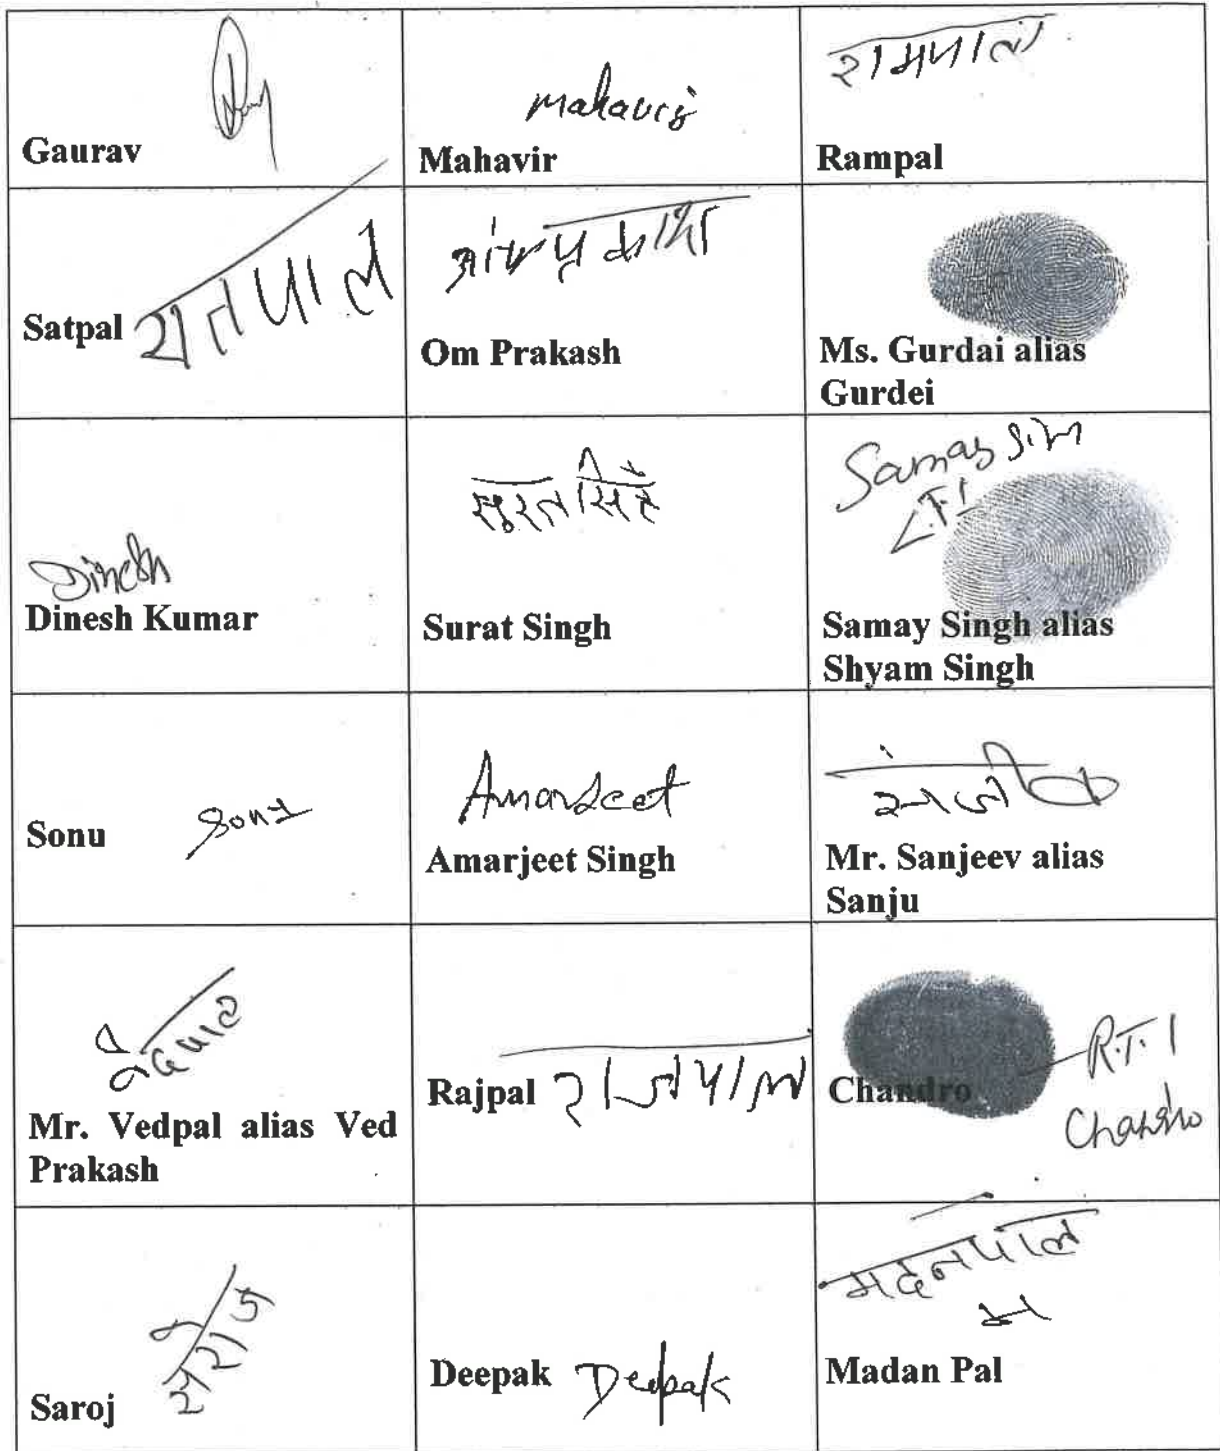 Gaurav
mahavir
Mahavir
रामपाल
Rampal
Satpal
सतपाल
Om Prakash
Ms. Gurdai alias
Gurdei
Dinesh
Dinesh Kumar
सुरत सिंह
Surat Singh
Samay sin
L.T.I
Samay Singh alias
Shyam Singh
Sonu
Sonu
Amarjeet
Amarjeet Singh
संजीव
Mr. Sanjeev alias
Sanju
वेदपाल
Mr. Vedpal alias Ved
Prakash
Rajpal
राजपाल
Chandro
R.T.I
Chandro
सरोज
Saroj
Deepak
Deepak
मदनपाल
Madan Pal